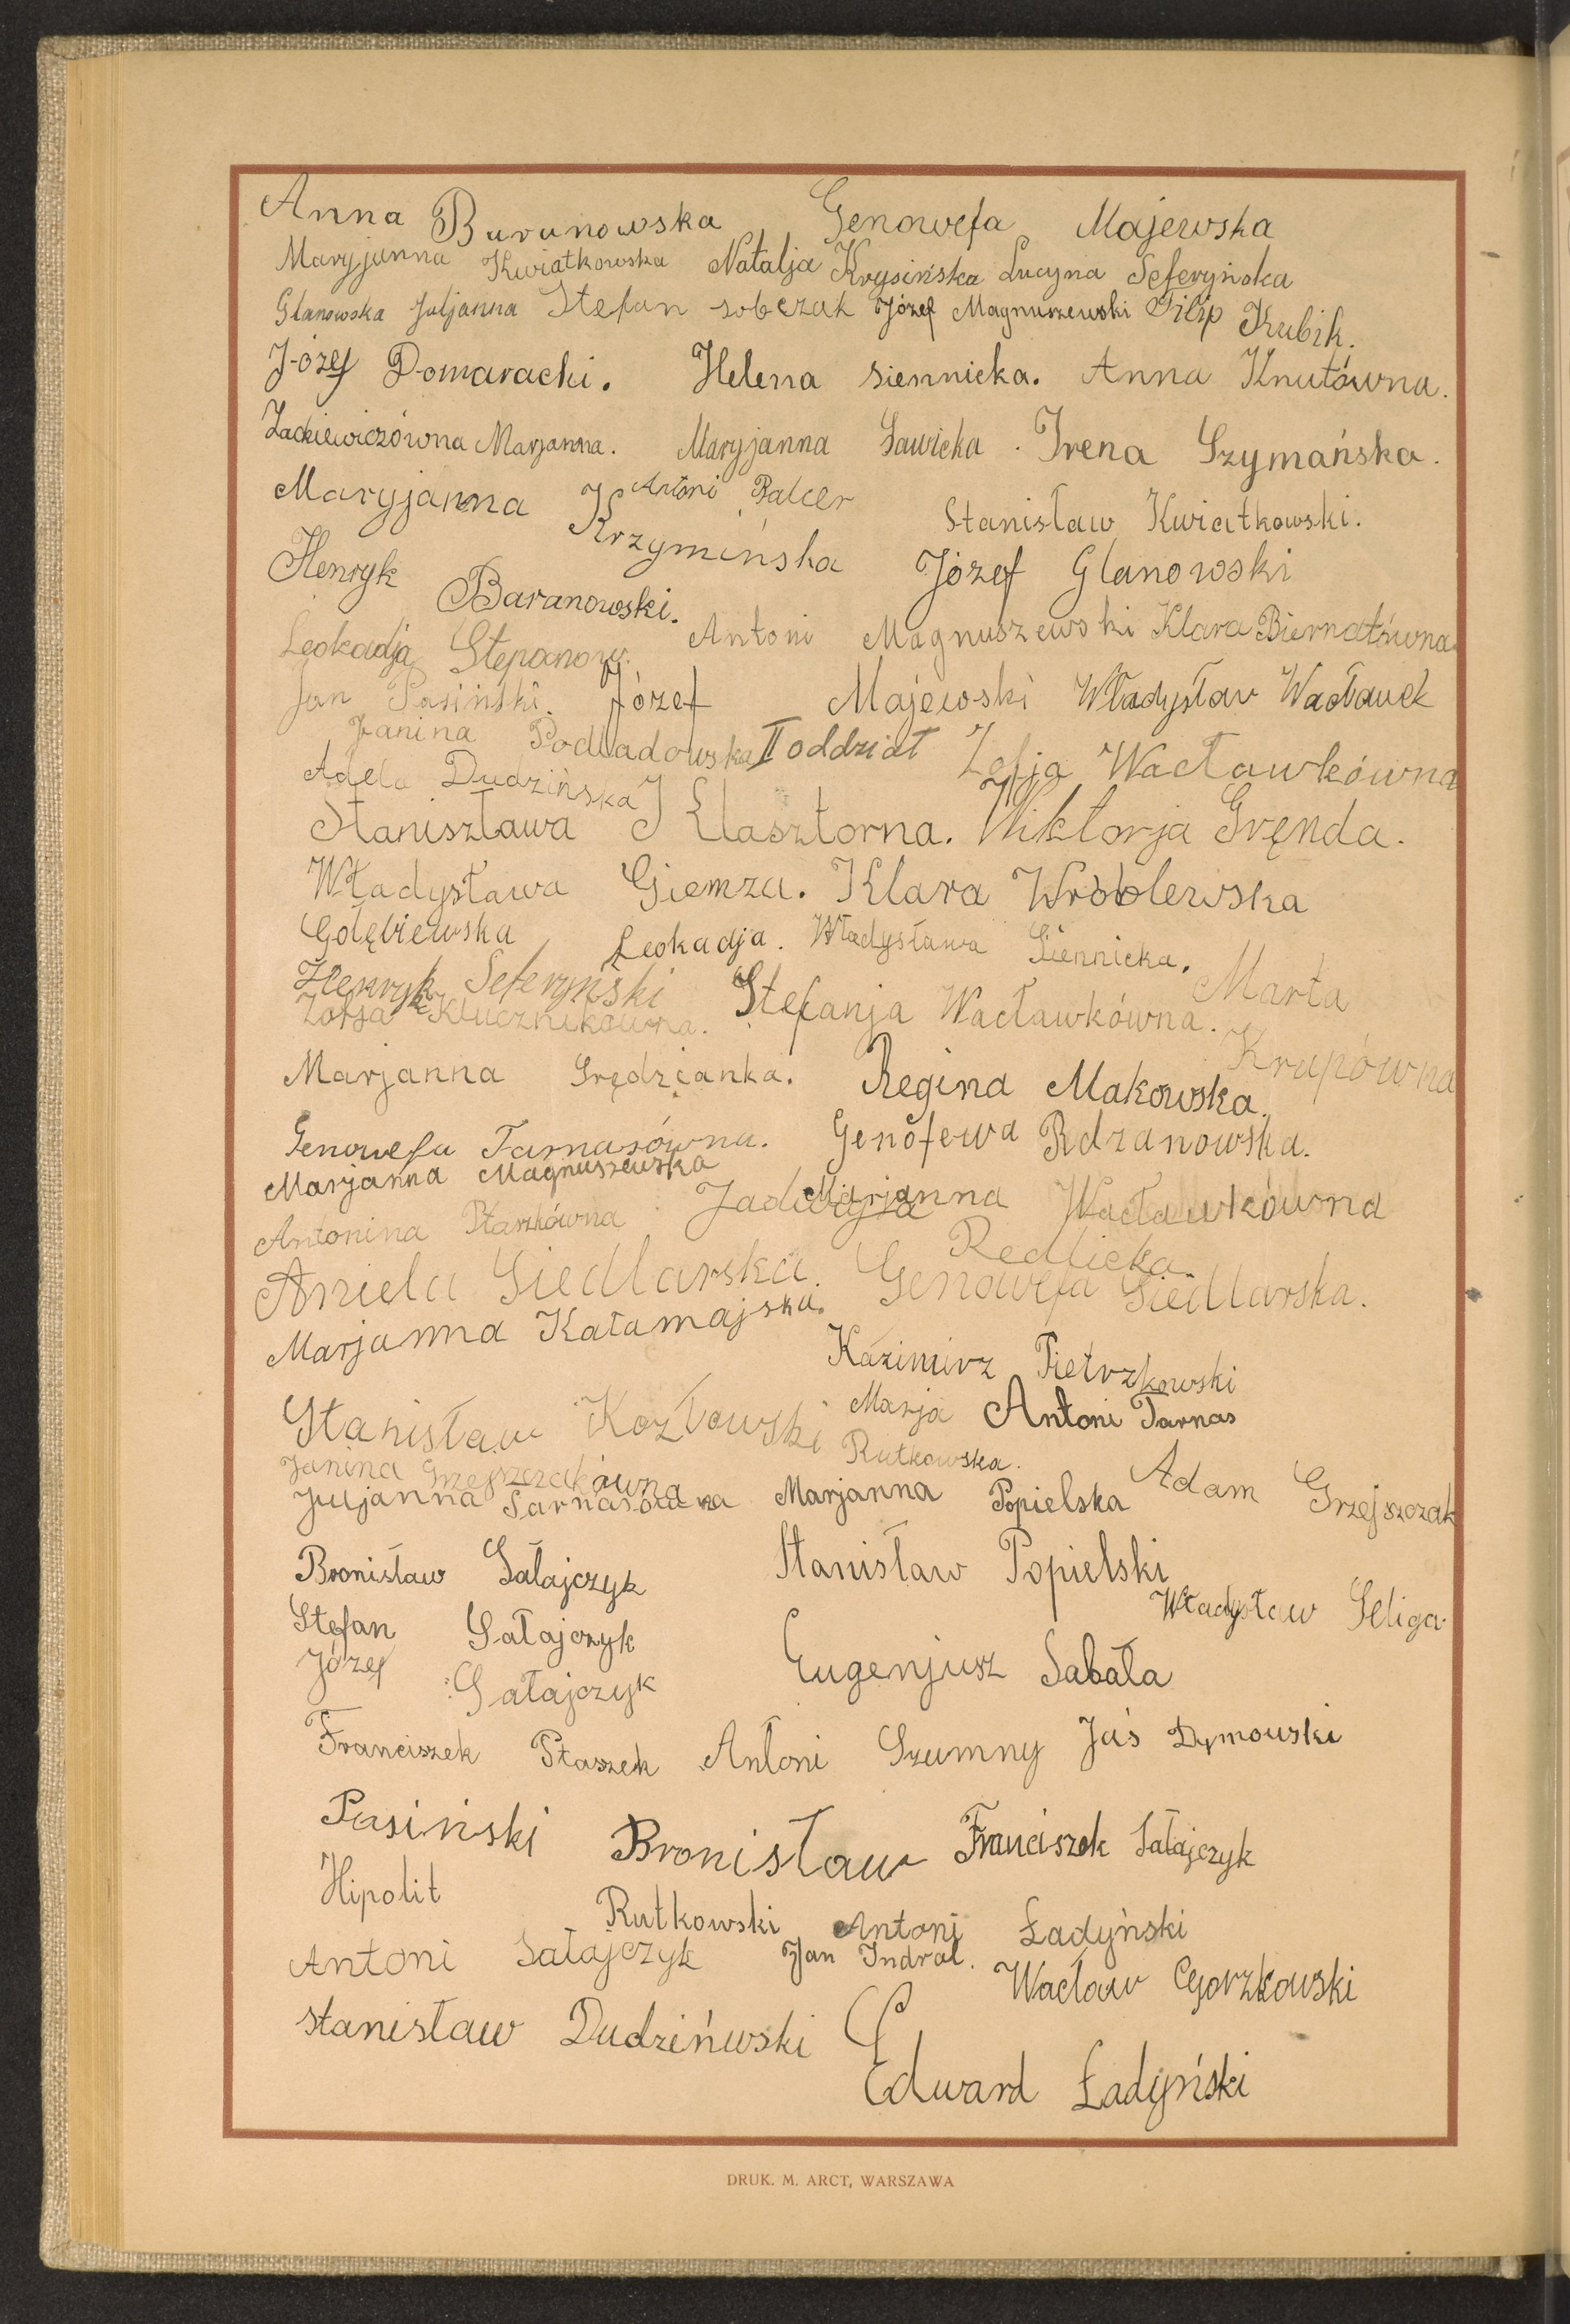 Anna Baranowska Genowefa Majewska
Maryjanna Kwiatkowska Natalja Krysińska Lucyna Seferyńska
Glanowska Juljanna Stefan sobczak Józef Magnuszewski Filip Kubik.
Józef Domaracki. Helena siennicka. Anna Knutówna.
Zackiewiczówna Marjanna. Maryjanna Sawicka. Irena Szymańska.
Maryjanna Krzymińska Antoni Balcer Stanisław Kwiatkowski.
Henryk Baranowski. Józef Glanowski
Leokadja Stepanow. Antoni Magnuszewski Klara Biernatówna
Jan Pasiński. Józef Majewski Władysław Wacławek
Janina Podladowska II oddział Zofja Wacławkówna
Adela Dudzińska
Staniszława Klasztorna. Wiktorja Gręnda.
Władysława Giemza. Klara Wróblewska
Gołębiewska Leokadja. Władysława Siennicka.
Henryk Seferyński Stefanja Wacławkówna. Marta Krupówna
Zofja Klucznikówna.
Marjanna Grędzianka. Regina Makowska.
Genowefa Tarnasówna. Genofewa Rdzanowska.
Marjanna Magnuszewska
Antonina Ptaszkówna Jadwiga Redlicka. Marjanna Wacławkówna
Aniela Siedlarska. Genowefa Siedlarska.
Marjanna Katamajska.
Kazimirz Pietrzkowski
Stanisław Kozłowski Marja Rutkowska. Antoni Tarnas
Janina Grzejszczakówna
Juljanna Tarnasówna Marjanna Popielska Adam Grzejszczak
Bronisław Sałajczyk Stanisław Popielski
Stefan Sałajczyk Władysław Seliga
Józef Sałajczyk Eugenjusz Sabała
Franciszek Ptaszek Antoni Szumny Jaś Dymowski
Pasiński Bronisław Franciszek Sałajczyk
Hipolit Rutkowski Antoni Ładyński
Antoni Sałajczyk Jan Indral. Wacław Gorzkowski
Stanisław Dudzińwski
Edward Ładyński
DRUK. M. ARCT, WARSZAWA